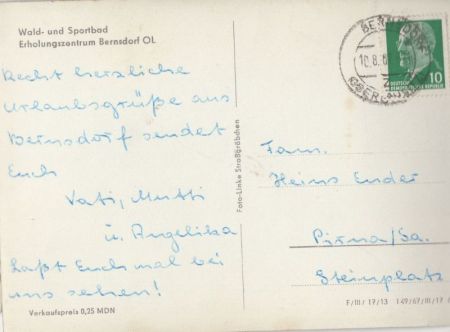 Wald- und Sportbad
Erholungszentrum Bernsdorf OL
Recht herzliche
Urlaubsgrüße aus
Bernsdorf sendet
Euch
Vati, Mutti
u. Angelika
Laßt Euch mal bei
uns sehen!
Verkaufspreis 0,25 MDN
Foto-Linke Straßgräbchen
10.8.6
DEUTSCHE
DEMOKRATISCHE REPUBLIK
10
Fam.
Heinz Ender
Pirna/Sa.
Steinplatz
F/III/17/13 1 49/67/III/17